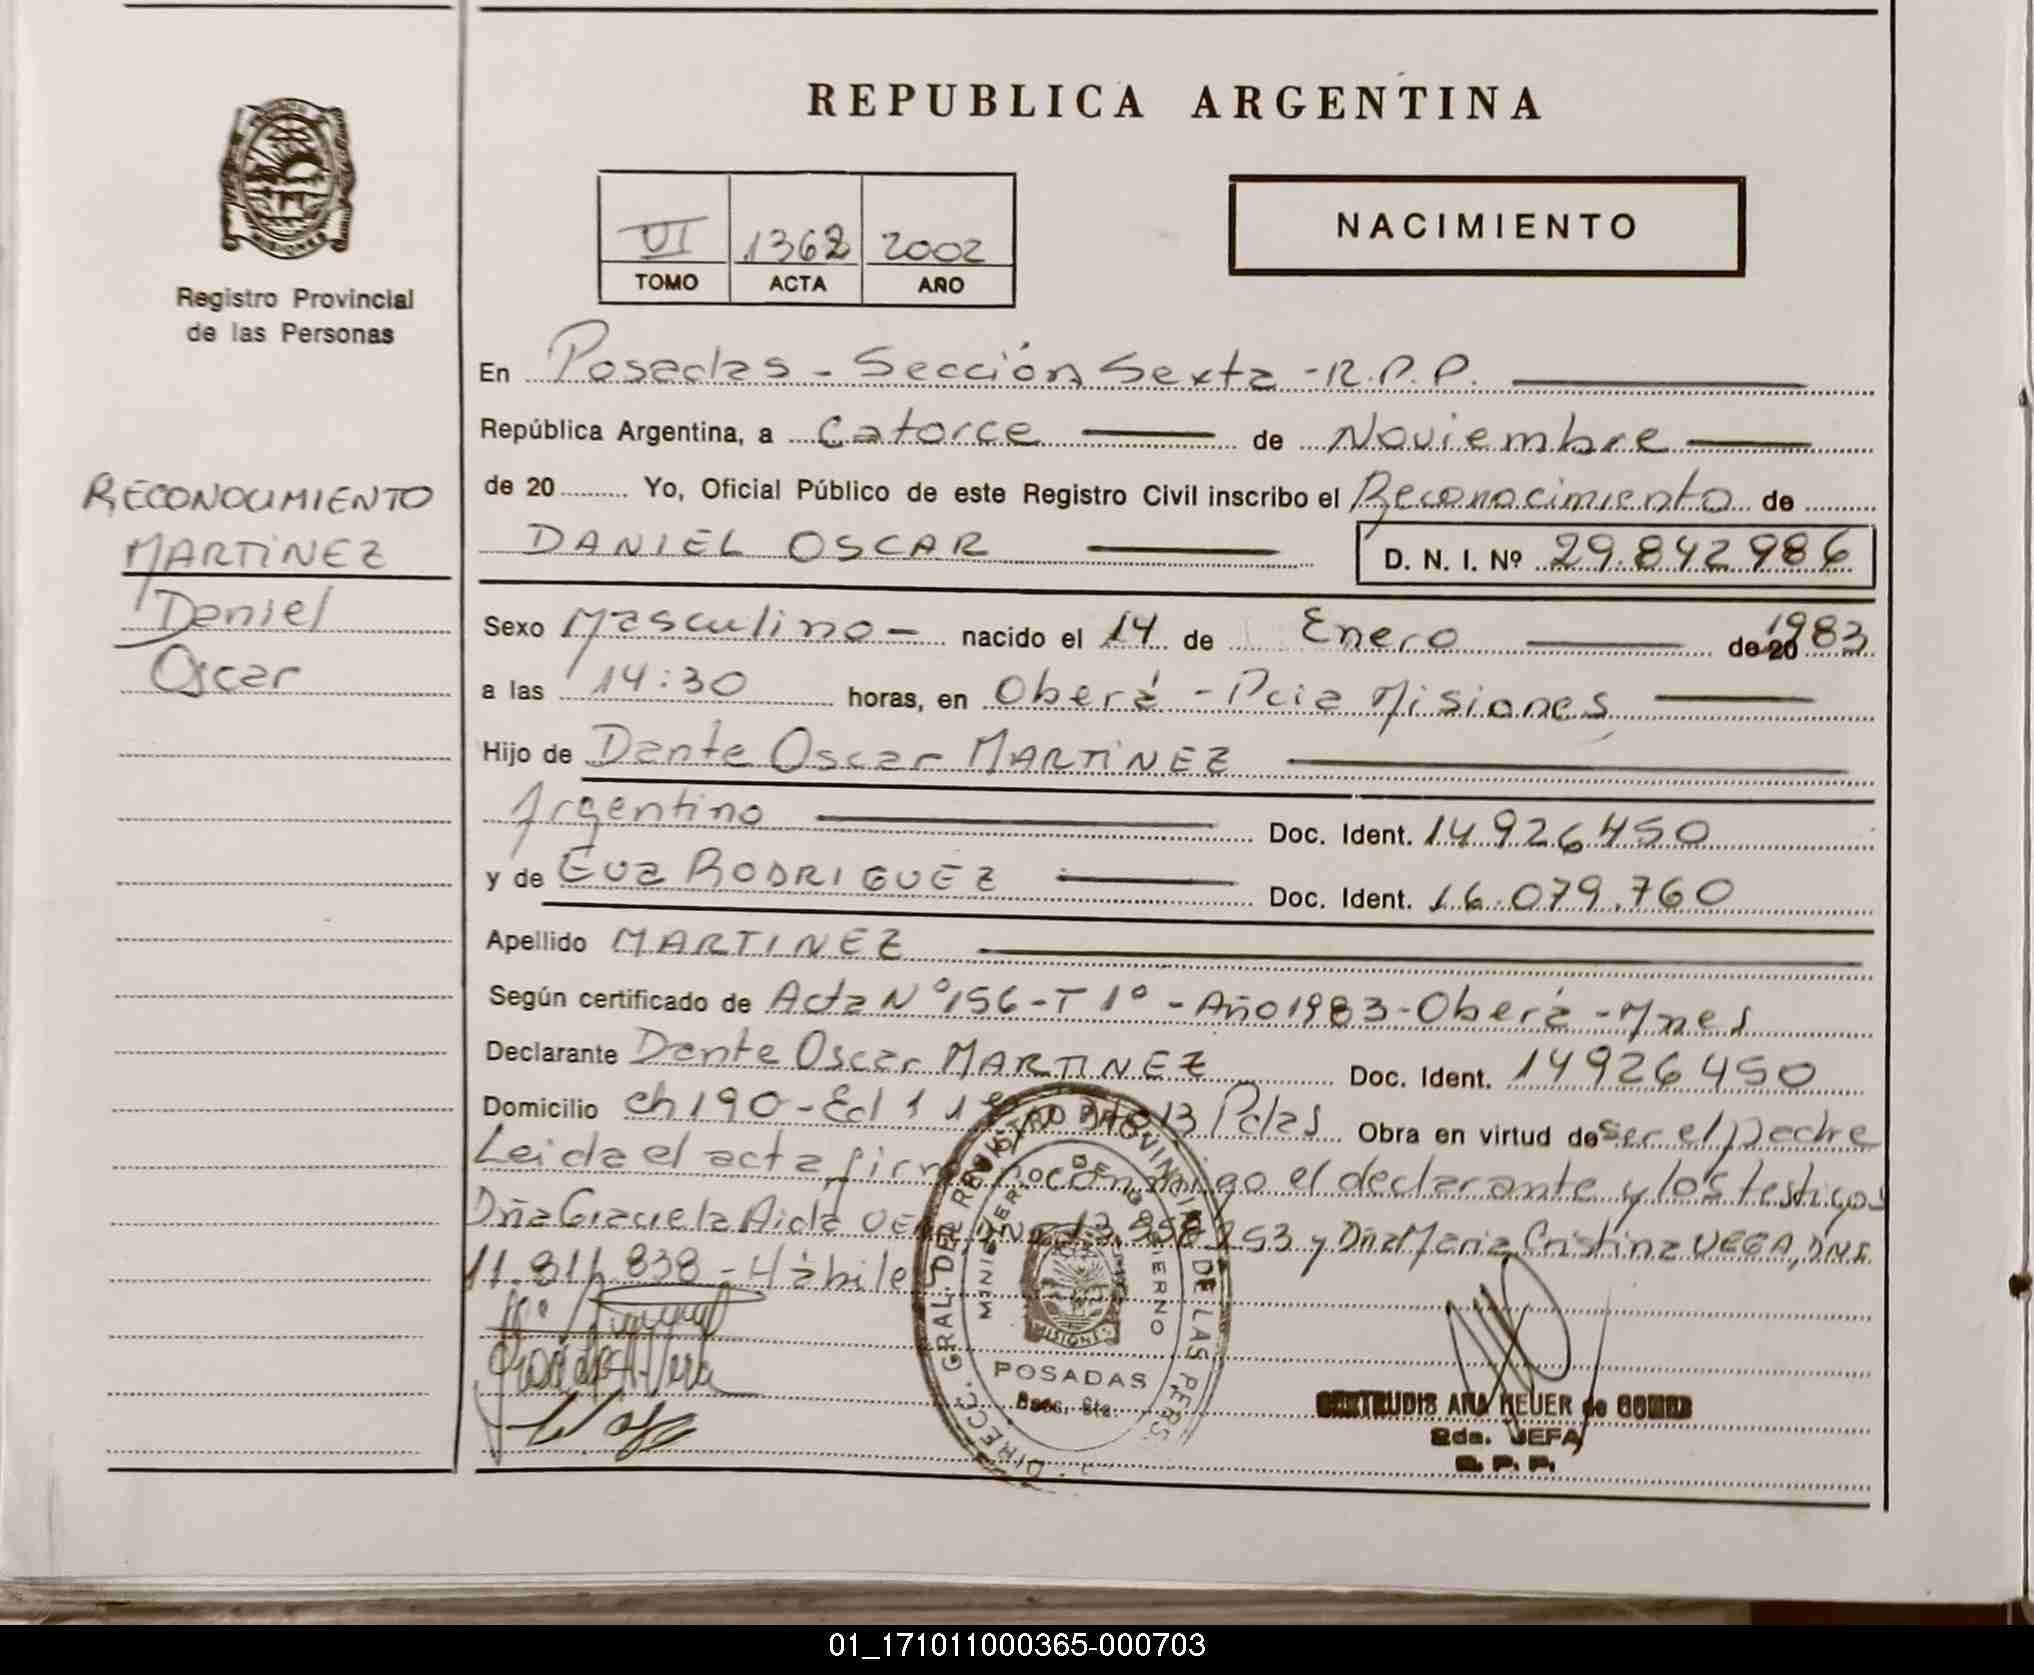 REPUBLICA ARGENTINA
MISIONES
Registro Provincial
de las Personas
VI 1362 2002
TOMO ACTA AÑO
NACIMIENTO
RECONOCIMIENTO
MARTINEZ
Daniel
Oscar
En Posadas - Sección Sexta - R.P.P.
República Argentina, a Catorce de Noviembre
de 20 ......... Yo, Oficial Público de este Registro Civil inscribo el Reconocimiento de
DANIEL OSCAR D. N. I. Nº 29.842986
Sexo Masculino - nacido el 14 de Enero de 20 1983
a las 14:30 horas, en Oberá - Pcia Misiones
Hijo de Dante Oscar MARTINEZ
Argentino Doc. Ident. 14926450
y de Eva RODRIGUEZ Doc. Ident. 16.079.760
Apellido MARTINEZ
Según certificado de Acta Nº 156 - T 1º - Año 1983 - Oberá - Mnes
Declarante Dante Oscar MARTINEZ Doc. Ident. 14926450
Domicilio ch 190 - Ed 1 13 Pdas Obra en virtud de ser el padre
Leida el acta el declarante y los testigos
Dña Graciela Aida 253 y Dña Maria Cristina VEGA, DNI
11.811.838 - Hábile
DIRECC. GRAL. DEL REGISTRO PROVINCIAL DE LAS PERS.
MINISTERIO DE GOBIERNO
MISIONES
POSADAS
GERTRUDIS ANA HEUER de GOMEZ
2da. JEFA
R. P. P.
01_171011000365-000703